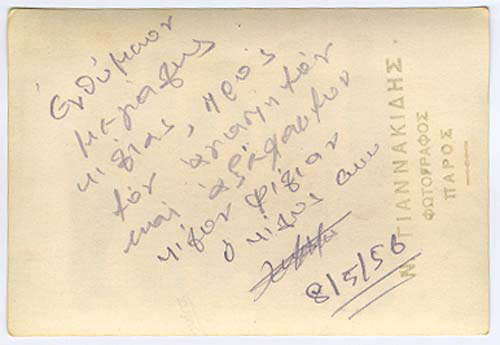 Ἐνθύμιον
μεγάλης
φιλίας, πρός
τόν ἀγαπητόν
καί ἀξέχαστον
φίλον
ὁ φίλος σου
8/5/56
Ν. ΓΙΑΝΝΑΚΙΔΗΣ
ΦΩΤΟΓΡΑΦΟΣ
ΠΑΡΟΣ